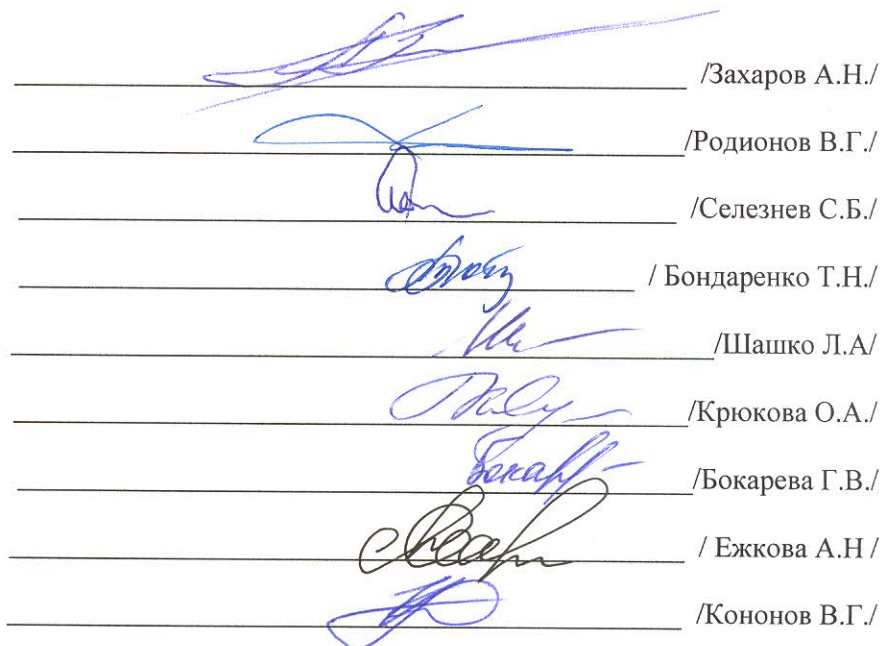 /Захаров А.Н./
/Родионов В.Г./
/Селезнев С.Б./
/ Бондаренко Т.Н./
/Шашко Л.А/
/Крюкова О.А./
/Бокарева Г.В./
/ Ежкова А.Н /
/Кононов В.Г./